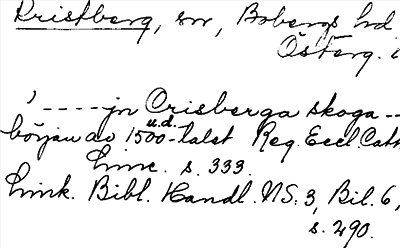 Kristberg, sn, Bobergs hd
Österg.
' ---- jn Crisberga skoga --
u.d.
början av 1500-talet Reg. Eccl. Cath
Linc. s. 333.
Link. Bibl. Handl. NS. 3, Bil. 6,
s. 290.